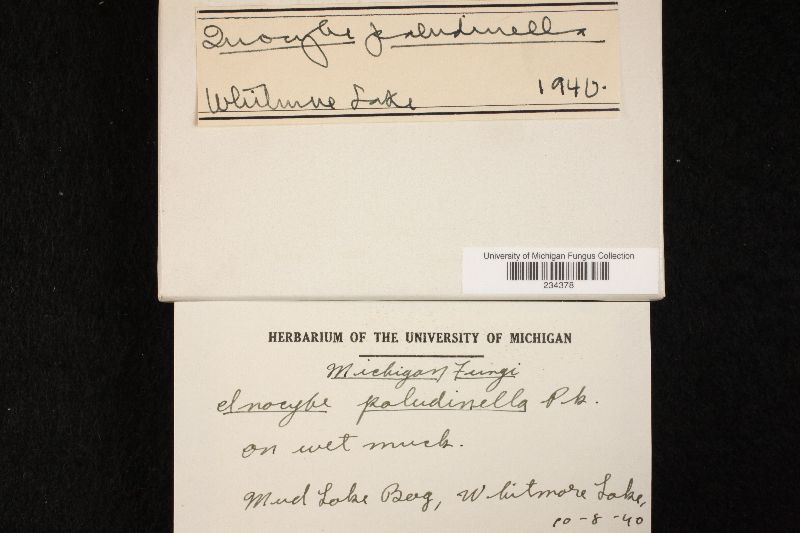 Inocybe paludinella
Whitmore Lake 1940.
University of Michigan Fungus Collection
234378
HERBARIUM OF THE UNIVERSITY OF MICHIGAN
Michigan Fungi
Inocybe paludinella Pk.
on wet muck.
Mud Lake Bog, Whitmore Lake,
10-8-40